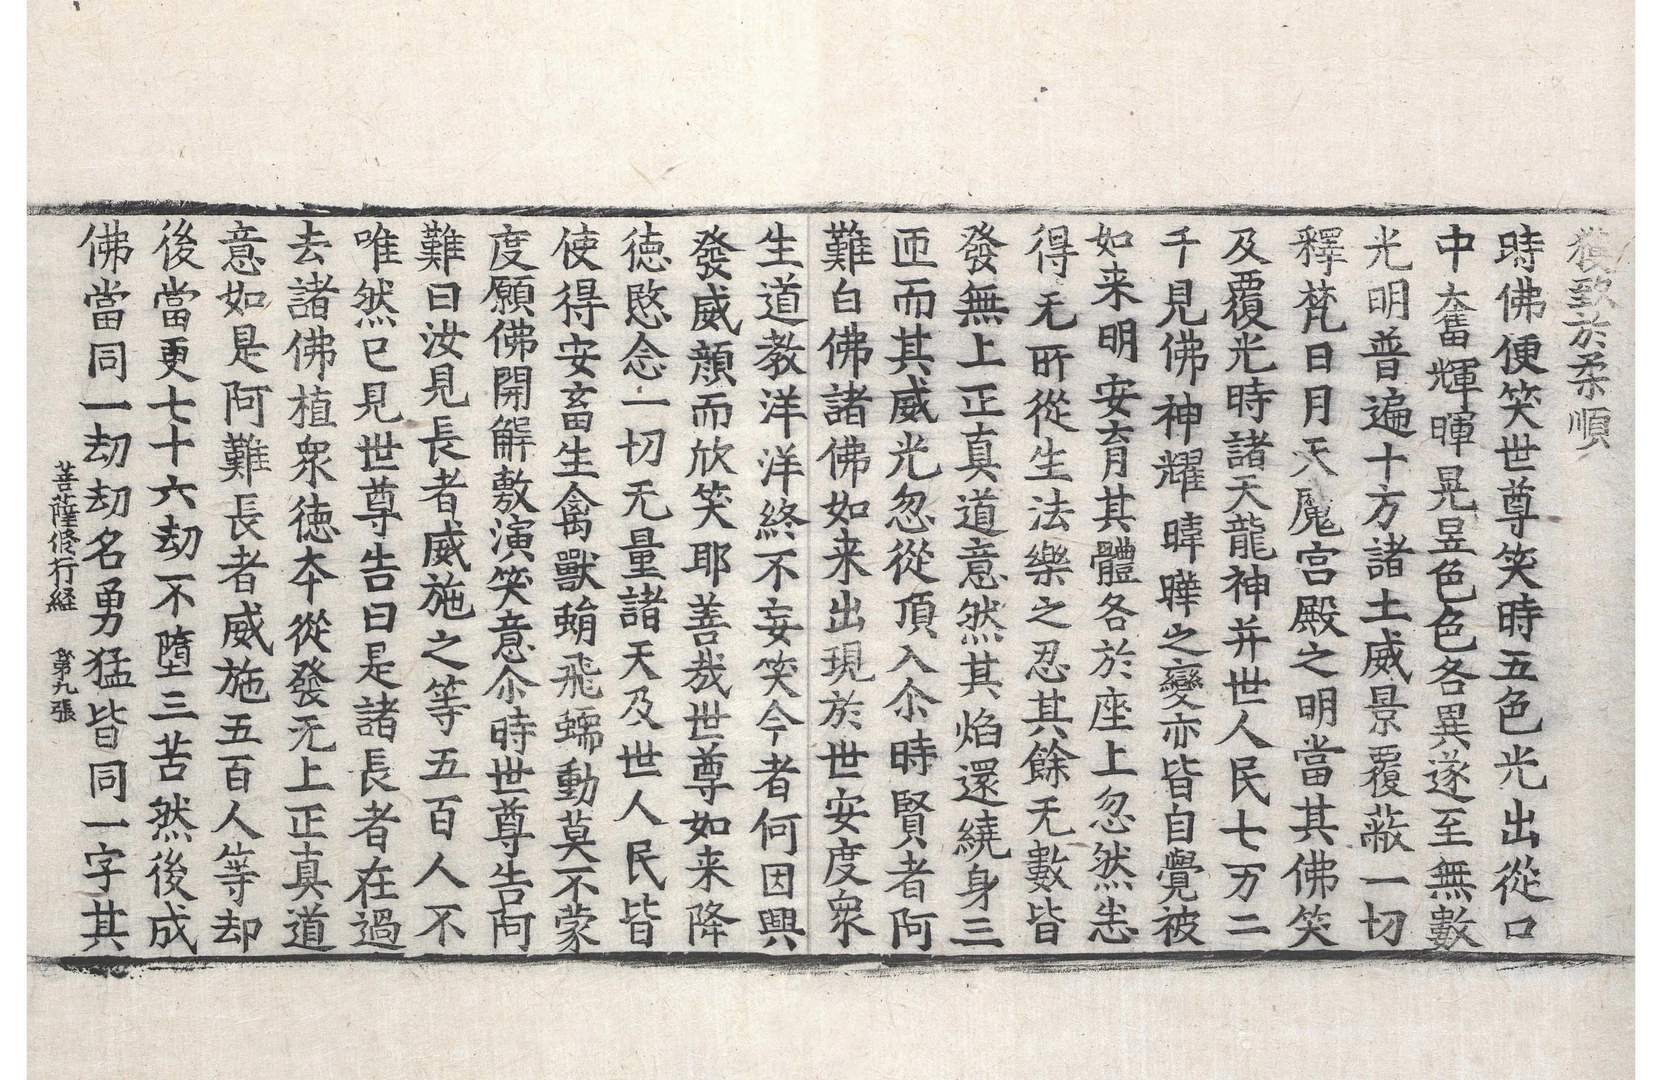 獲致於柔順
時佛便笑世尊笑時五色光出從口
中奮輝暉晃昱色色各異遂至無數
光明普遍十方諸土威景覆蔽一切
釋梵日月天魔宮殿之明當其佛笑
及覆光時諸天龍神并世人民七万二
千見佛神耀暐曄之變亦皆自覺被
如来明安育其體各於座上忽然恙
得无所從生法樂之忍其餘无數皆
發無上正真道意然其焰還繞身三
迊而其威光忽從頂入尒時賢者阿
難白佛諸佛如来出現於世安度衆
生道教洋洋終不妄笑今者何因興
發威顔而欣笑耶善哉世尊如来降
徳愍念一切无量諸天及世人民皆
使得安畜生禽獸蜎飛蠕動莫不蒙
度願佛開解敷演笑意尒時世尊告阿
難曰汝見長者威施之等五百人不
唯然已見世尊告曰是諸長者在過
去諸佛植衆徳本從發无上正真道
意如是阿難長者威施五百人等却
後當更七十六劫不墮三苦然後成
佛當同一劫劫名勇猛皆同一字其
菩薩修行経 第九張